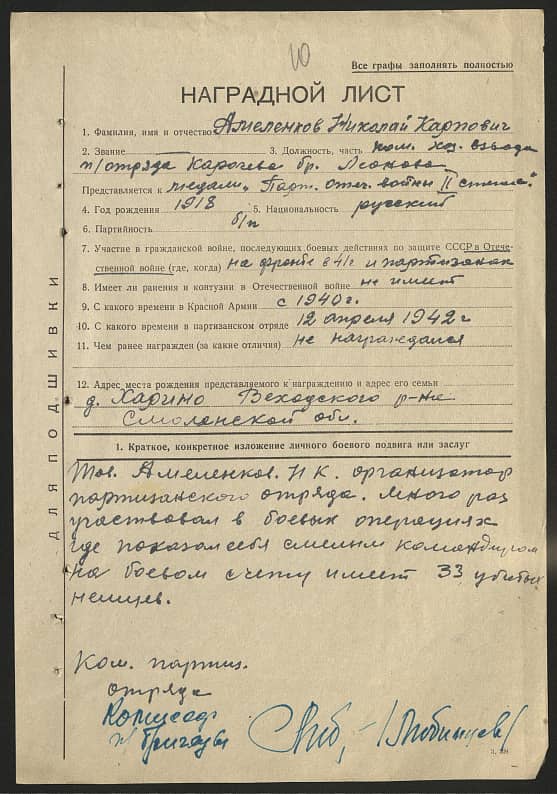 10
Все графы заполнять полностью
НАГРАДНОЙ ЛИСТ
1. Фамилия, имя и отчество Амеленков Николай Карпович
2. Звание 3. Должность, часть ком. хоз. взвода
п/отряда Карочева бр. Леонова
Представляется к медали „Парт. отеч. войны II степ."
4. Год рождения 1918 5. Национальность русский
6. Партийность б/п
7. Участие в гражданской войне, последующих боевых действиях по защите СССР в Отече-
ственной войне (где, когда) на фронте в 41г и партизанах
8. Имеет ли ранения и контузии в Отечественной войне не имеет
9. С какого времени в Красной Армии с 1940г.
10. С какого времени в партизанском отряде 12 апреля 1942г
11. Чем ранее награжден (за какие отличия) не награждался
12. Адрес места рождения представляемого к награждению и адрес его семьи
д. Харино Веходского р-на
Смоленской обл.
1. Краткое, конкретное изложение личного боевого подвига или заслуг
Тов. Амеленков. Н К. организатор
партизанского отряда. Много раз
участвовал в боевых операциях
где показал себя смелым командиром
на боевом счету имеет 33 убитых
немцев.
Ком. партиз.
отряда
Комиссар
п/бригады
ДЛЯ ПОДШИВКИ